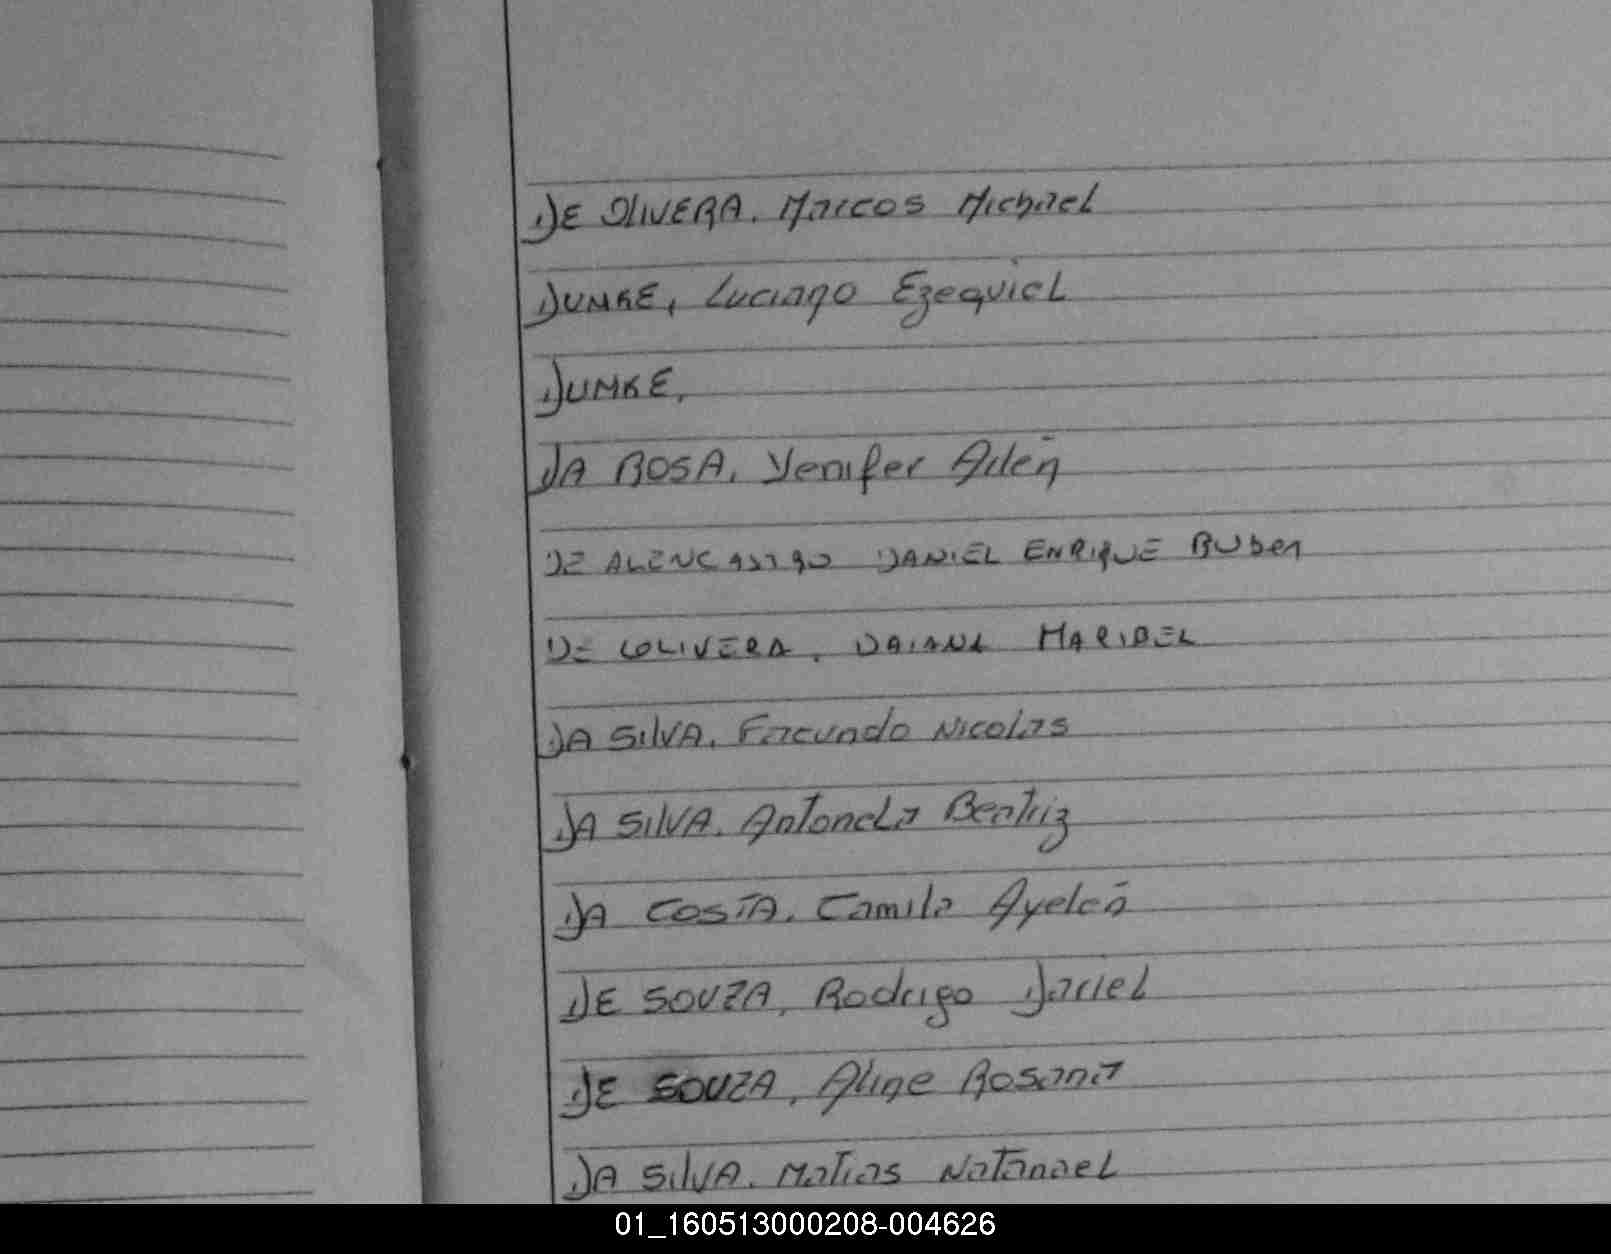 DE OLIVERA. Marcos Michael
DUMKE, Luciano Ezequiel
DUMKE,
DA ROSA. Yenifer Ailén
DE ALENCASTRO DANIEL ENRIQUE RUben
DE OLIVERA. DAIANA MARIBEL
DA SilVA. Facundo Nicolas
DA SilVA. Antonela Beatriz
DA COSTA. Camila Ayelén
DE SOUZA, Rodrigo Dariel
DE SOUZA, Aline Rosana
DA SilVA. Matias Natanael
01_160513000208-004626